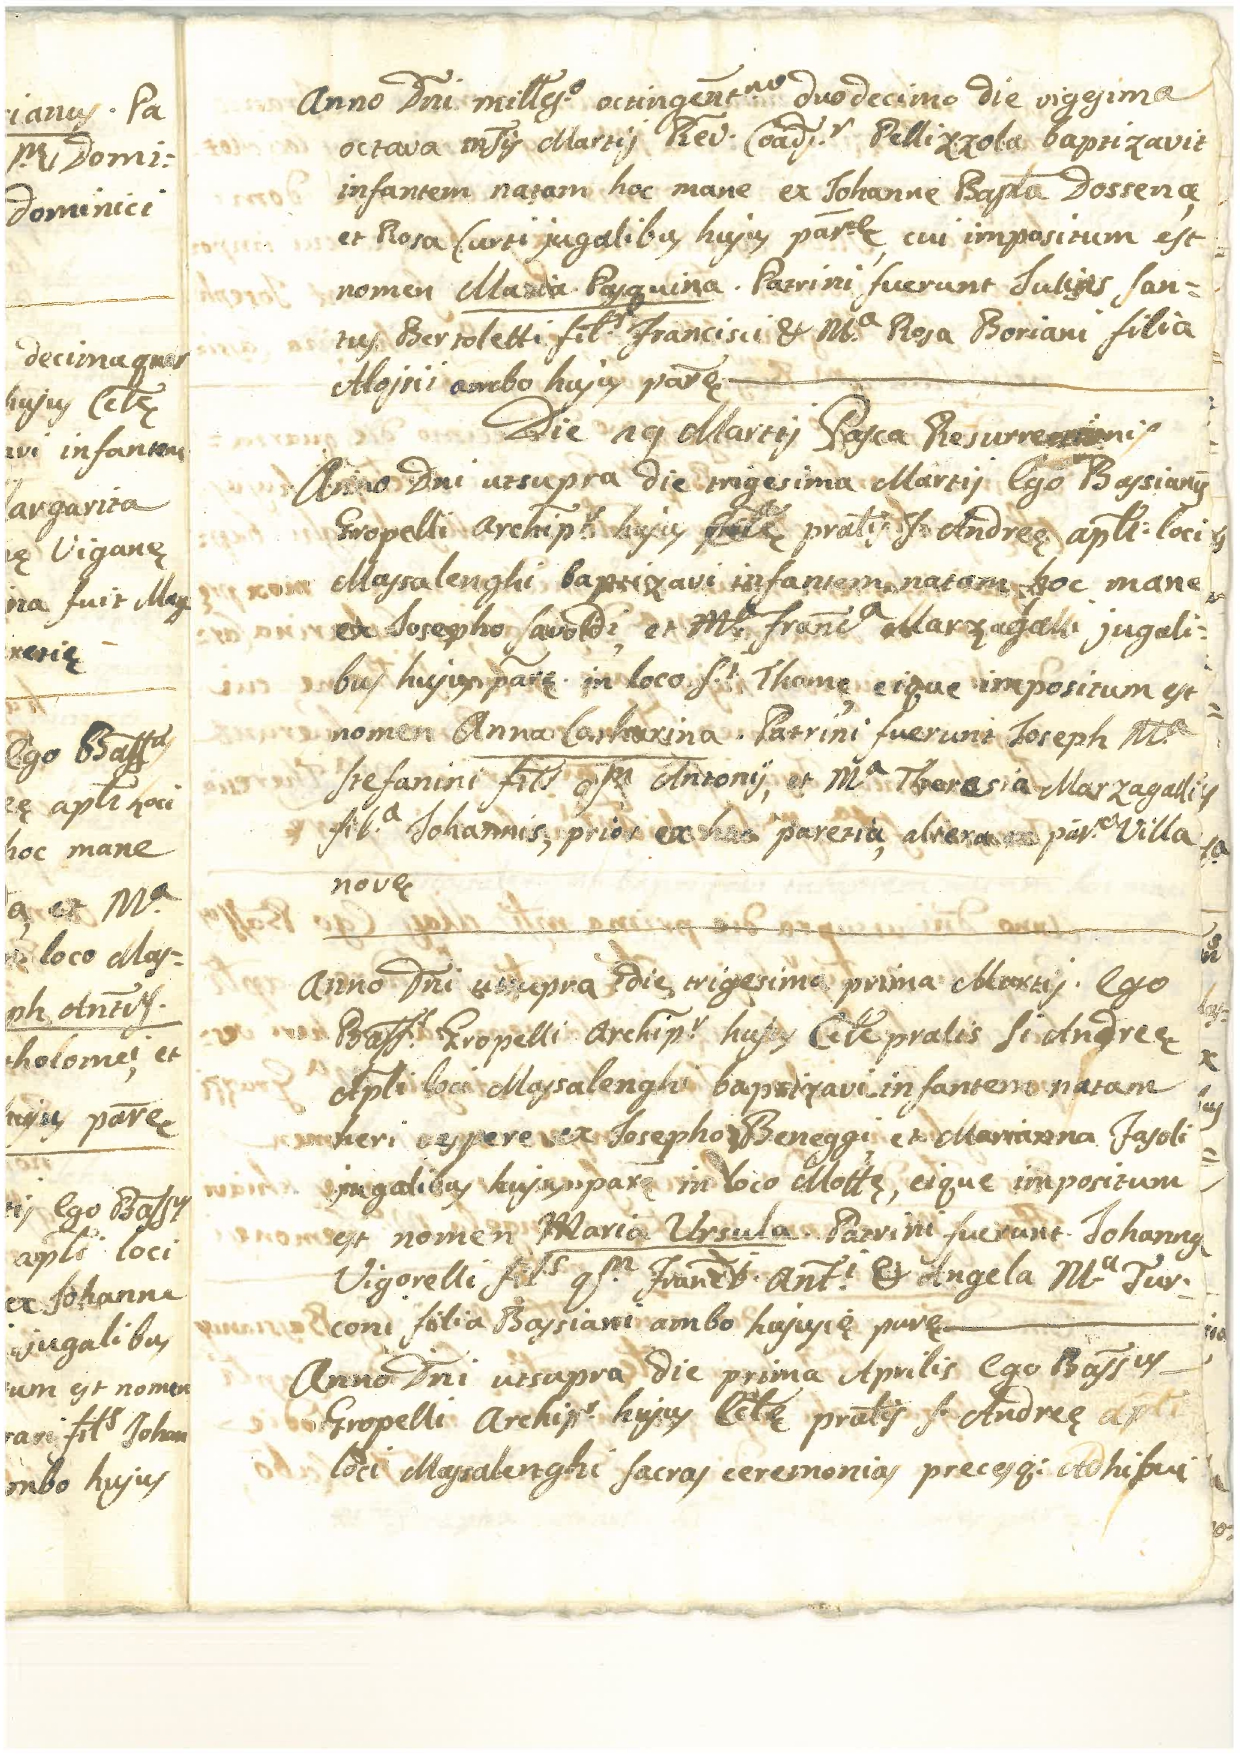 rianus. Pa
Domi:
Dominici
decimaquar
hujus Celę
avi infantem
Margarita
nę Viganę
ina fuit Mag
retię
Ego Bassus
eę apli loci
hoc mane
a, et Mª
loco Mas=
ph Antus.
tholomei, et
hujus paręę
tij Ego Bassus
apli loci
ex Johanne
jugalibus
tum est nomen
rari fils Johan
ambo hujus
Anno Dni milleso octingentmo duodecimo die vigesima
octava msis Martij Rev. Coadjr Pellizzola baptizavit
infantem natam hoc mane ex Johanne Bapta Dossena,
et Rosa Curti jugalibus hujus partę, cui impositum est
nomen Maria Pasquina. Patrini fuerunt Julius San=
tus Bertoletti fils Francisci & Mª Rosa Boriani filia
Alojsii ambo hujus parę
Die 29 Martij Pasca Resurrectionis
Anno Dni utsupra die trigesima Martij Ego Bassianus
Gropelli Archipr hujus pralis Sti Andreę apli loci
Massalenghi baptizavi infantem natam hoc mane
ex Josepho Savoldi, et Mª Francª Marzagalli jugali=
bus hujus parę in loco Sti Thomę, eique impositum est
nomen Anna Catharina. Patrini fuerunt Joseph Mª
Stefanini fils qm Antonij, et Mª Theresia Marzagalli
filª Johannis, prior ex hac paretia, altera ex par. Villa
novę
Anno Dni utsupra die trigesima prima Martij. Ego
Bassus Gropelli Archipr hujus Celę pralis Sti Andreę
Apli loci Massalenghi baptizavi infantem natam
heri vespere ex Josepho Beneggi, et Marianna Fasoli
jugalibus hujus parę in loco Mottę, eique impositum
est nomen Maria Ursula. Patrini fuerunt Johannes
Vigorelli fils qm Franci Anti & Angela Mª Tur=
coni filia Bassiani ambo hujus parę
Anno Dni utsupra die prima Aprilis Ego Bassus
Gropelli Archipr hujus Celę pralis Sti Andreę apli
loci Massalenghi sacras ceremonias precesq: adhibui